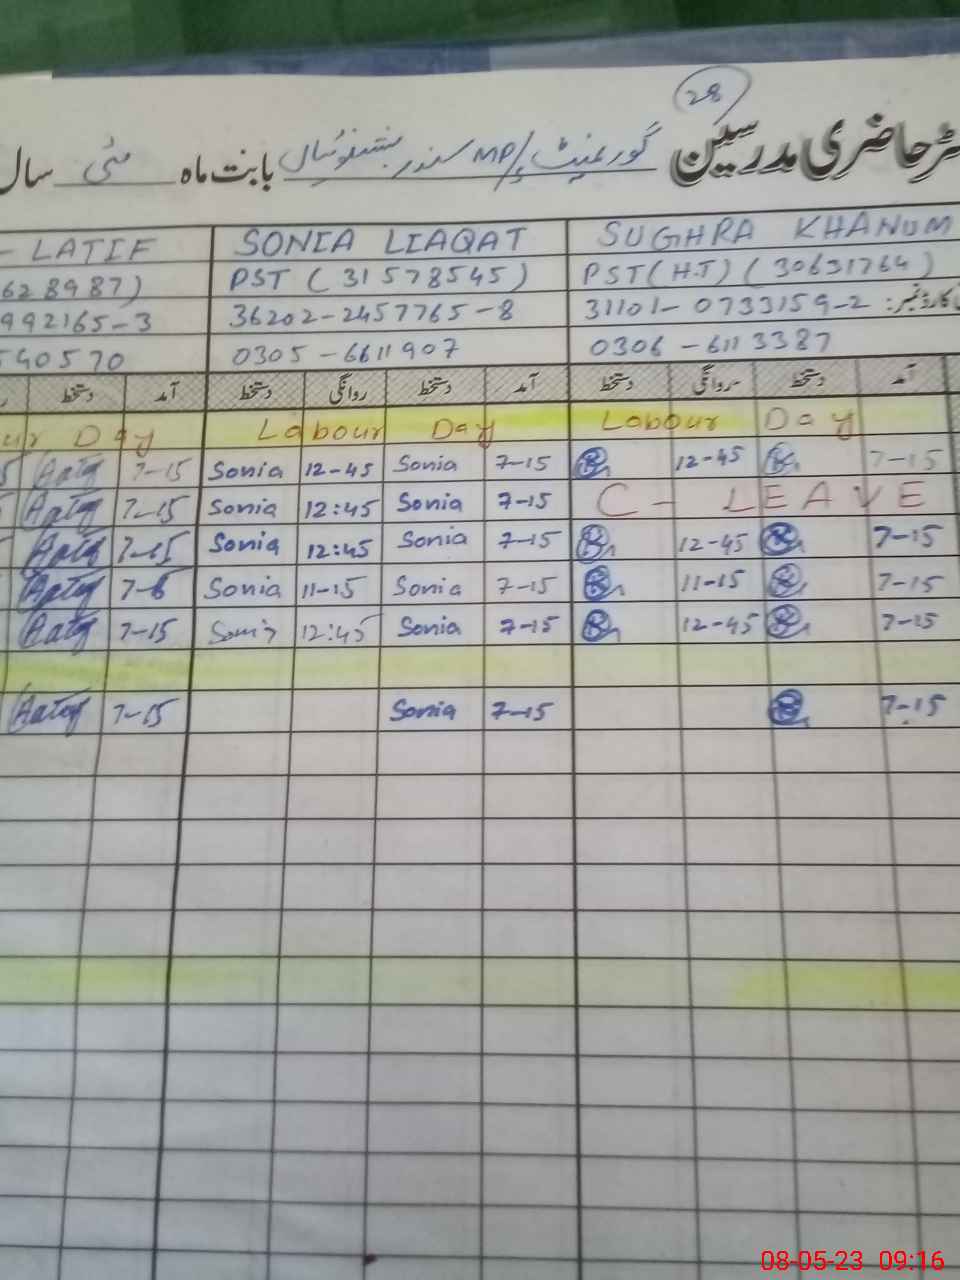 28
حاضری مدرسین گورنمنٹ MP/ سندر بابت ماہ مئی سال
LATIF SONIA LIAQAT SUGHRA KHANUM
628987) PST (31578545) PST (H.T) (30631764)
992165-3 36202-2457765-8 31101-0733159-2 کارڈ نمبر:
540570 0305-6611907 0306-6113387
دستخط آمد دستخط روانگی دستخط آمد دستخط روانگی دستخط آمد
ur Day Labour Day Labour Day
7-15 Sonia 12-45 Sonia 7-15 12-45 7-15
7-15 Sonia 12:45 Sonia 7-15 C- LEAVE
7-15 Sonia 12:45 Sonia 7-15 12-45 7-15
Sonia 11-15 Sonia 7-15 11-15 7-15
7-15 Sonia 12:45 Sonia 7-15 12-45 7-15
7-15 Sonia 7-15 7-15
08-05-23 09:16